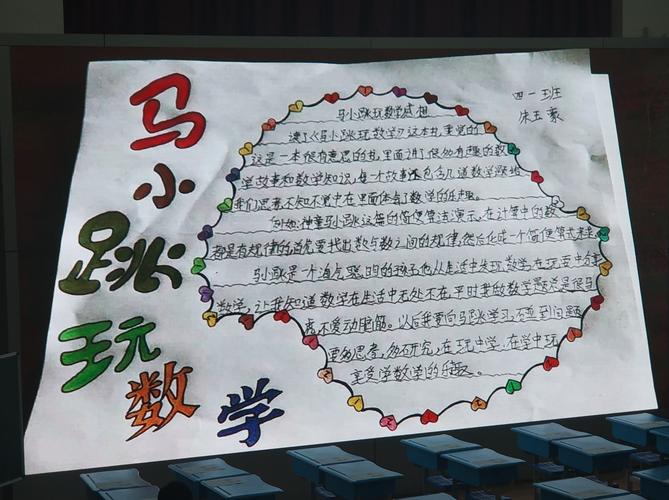 马小跳玩数学
四一班
马小跳玩数学感想
读了《马小跳玩数学》这本书,里面的
这是一本很有意思的书,里面讲了很多有趣的数
学故事和数学知识,每一个故事包含几道数学题,让
我们思考不知不觉中在里面体会了数学的乐趣。
例如:神童马小跳这篇的简便算法演示,在计算中的数
都是有规律的,首先要找出数与数之间的规律,然后化成一个简便算式
马小跳是一个調皮聪明的孩子他从生活中发现数学,在玩耍中
数学,让我知道数学在生活中无处不在,平时我的数学题总是很
不爱动脑筋。以后我要向马小跳学习,不到问题
要多思考,多研究,在玩中学,在学中玩
享受学数学的乐趣。